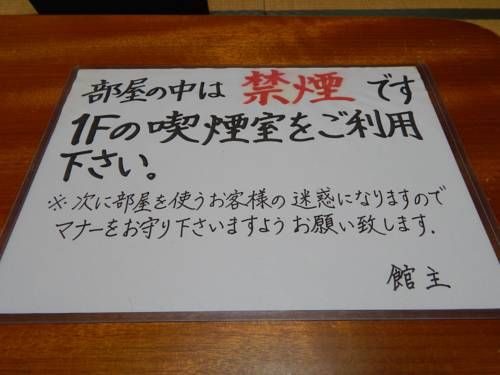 部屋の中は 禁煙 です
1Fの喫煙室をご利用
下さい。
※次に部屋を使うお客様の迷惑になりますので
マナーをお守り下さいますようお願い致します.
館主